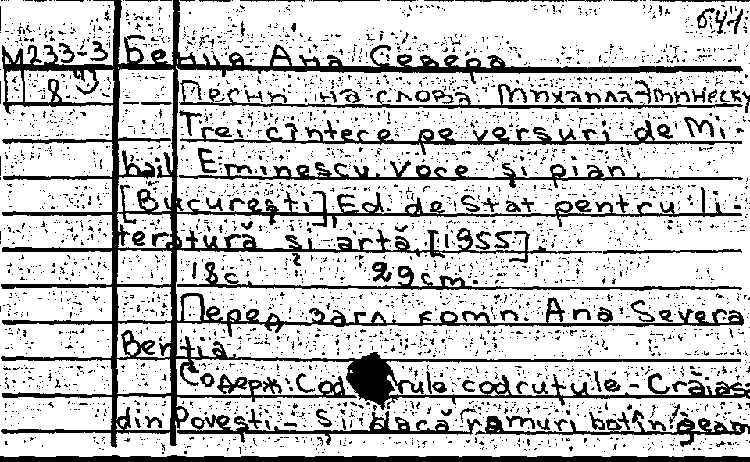 541
М233-3 Бенциа Ана Севера
8 Песни на слова Михаила Эминеску
Trei cîntece pe versuri de Mi-
hail Eminescu. Voce și pian.
[București], Ed. de Stat pentru li-
teratură și artă, [1955].
18 с. 29 cm.
Перед загл. комп. Ana Severa
Bentia.
Содерж: Cod rule, codruțule. - Crăiasa
din Povești. - Și dacă ramuri bat în geam